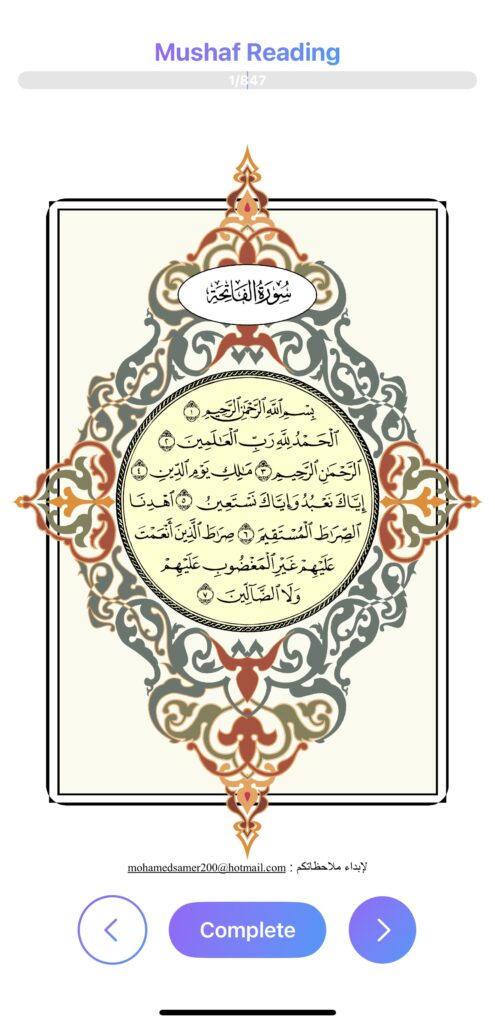 Mushaf Reading
1/847
سُورَةُ الفَاتِحَةِ
بِسْمِ اللَّهِ الرَّحْمَٰنِ الرَّحِيمِ ١
الْحَمْدُ لِلَّهِ رَبِّ الْعَالَمِينَ ٢
الرَّحْمَٰنِ الرَّحِيمِ ٣ مَالِكِ يَوْمِ الدِّينِ ٤
إِيَّاكَ نَعْبُدُ وَإِيَّاكَ نَسْتَعِينُ ٥ اهْدِنَا
الصِّرَاطَ الْمُسْتَقِيمَ ٦ صِرَاطَ الَّذِينَ أَنْعَمْتَ
عَلَيْهِمْ غَيْرِ الْمَغْضُوبِ عَلَيْهِمْ
وَلَا الضَّالِّينَ ٧
لإبداء ملاحظاتكم : mohamedsamer200@hotmail.com
Complete